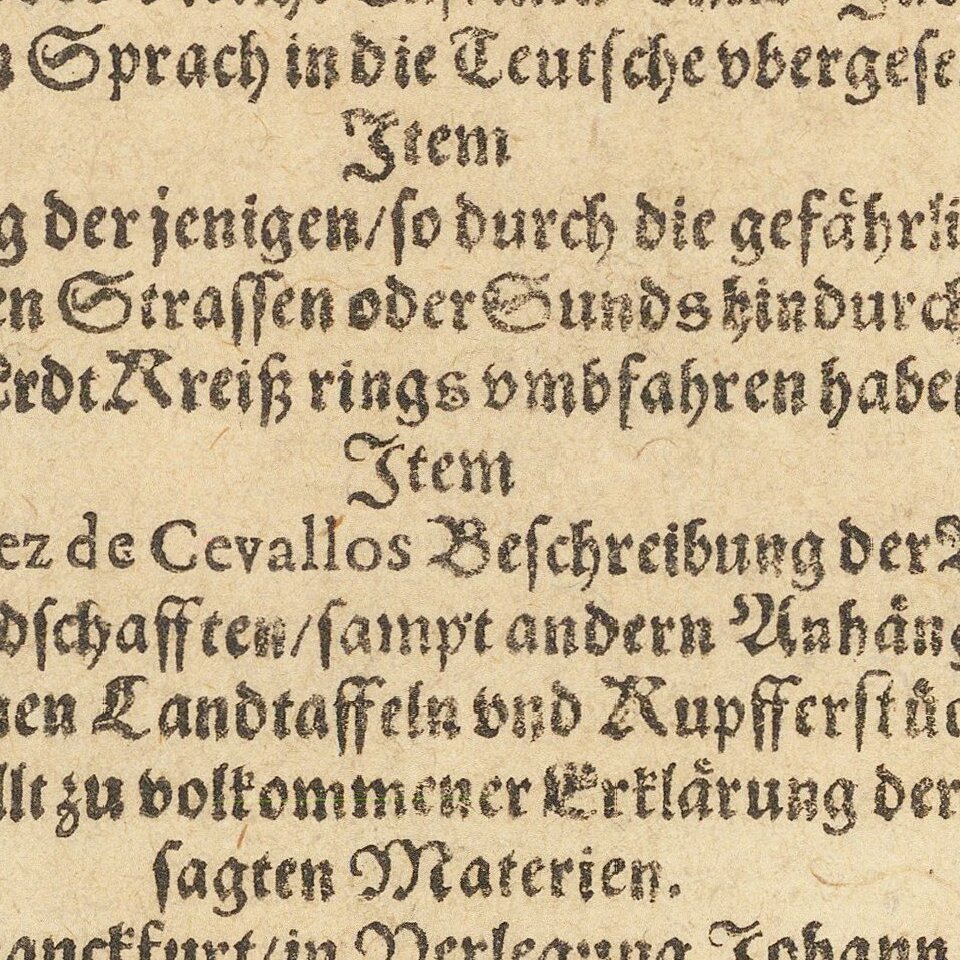 Sprach in die Teutſche vbergeſe
Item
g der jenigen/ſo durch die gefährli
en Straſſen oder Sunds hindurch
Erdt Kreiß rings vmbfahren haben
Item
ez de Cevallos Beſchreibung der
dſchafften/ſampt andern Anhäng
nen Landtaffeln vnd Kupfferſtüc
llt zu volkommener Erklärung der
ſagten Materien.
anckfurt/in Verlegung Johann